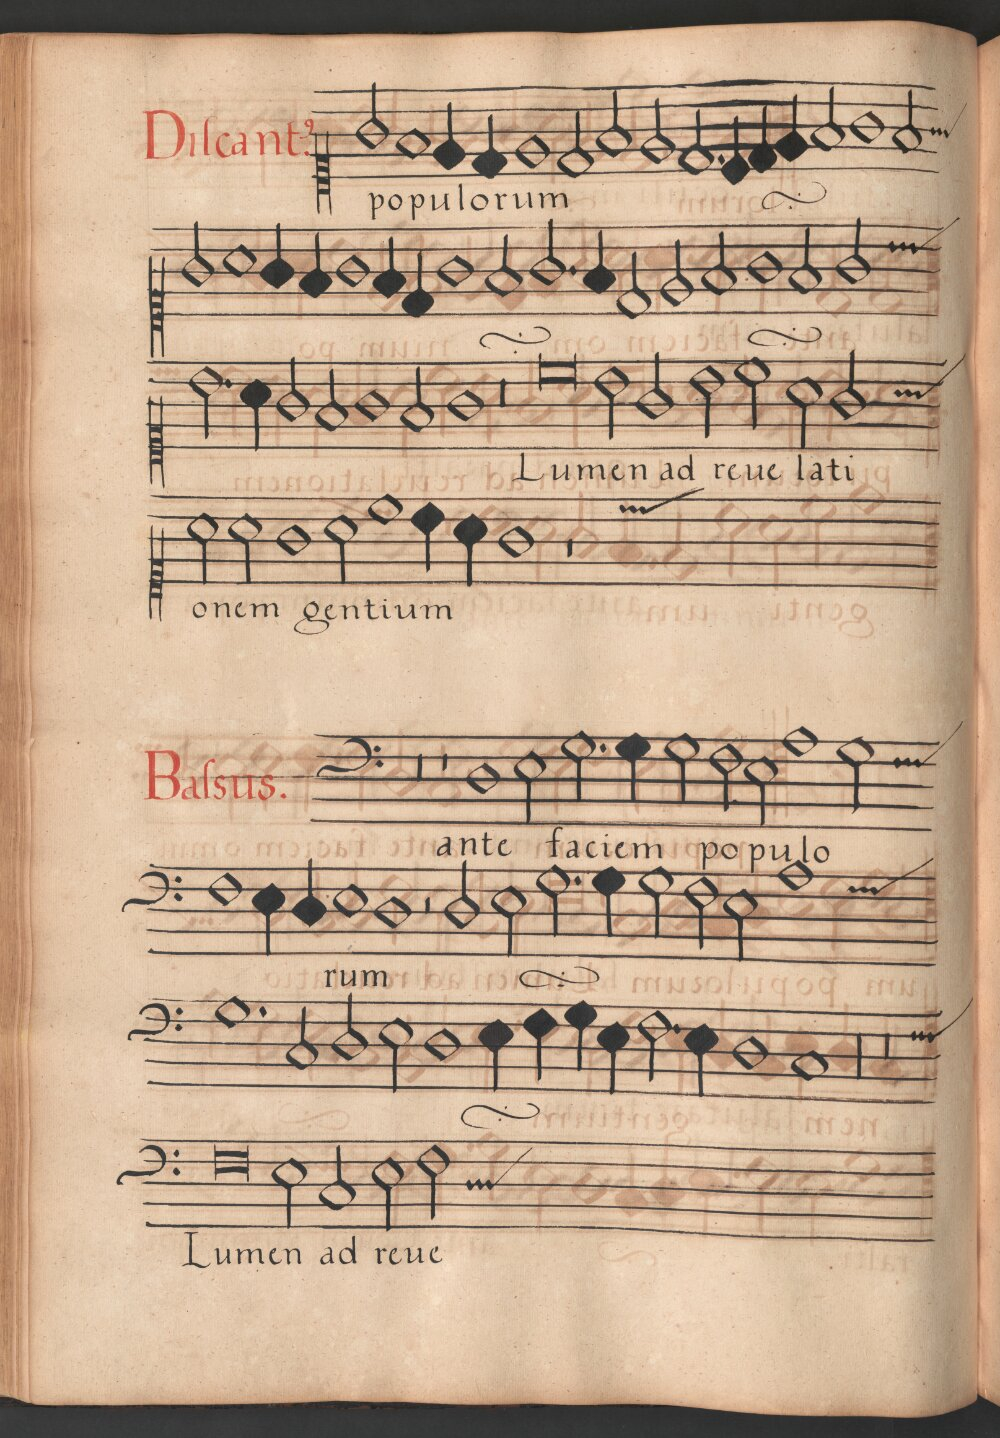 Discantꝰ.
populorum
Lumen ad reue lati
onem gentium
Bassus.
ante faciem populo
rum
Lumen ad reue